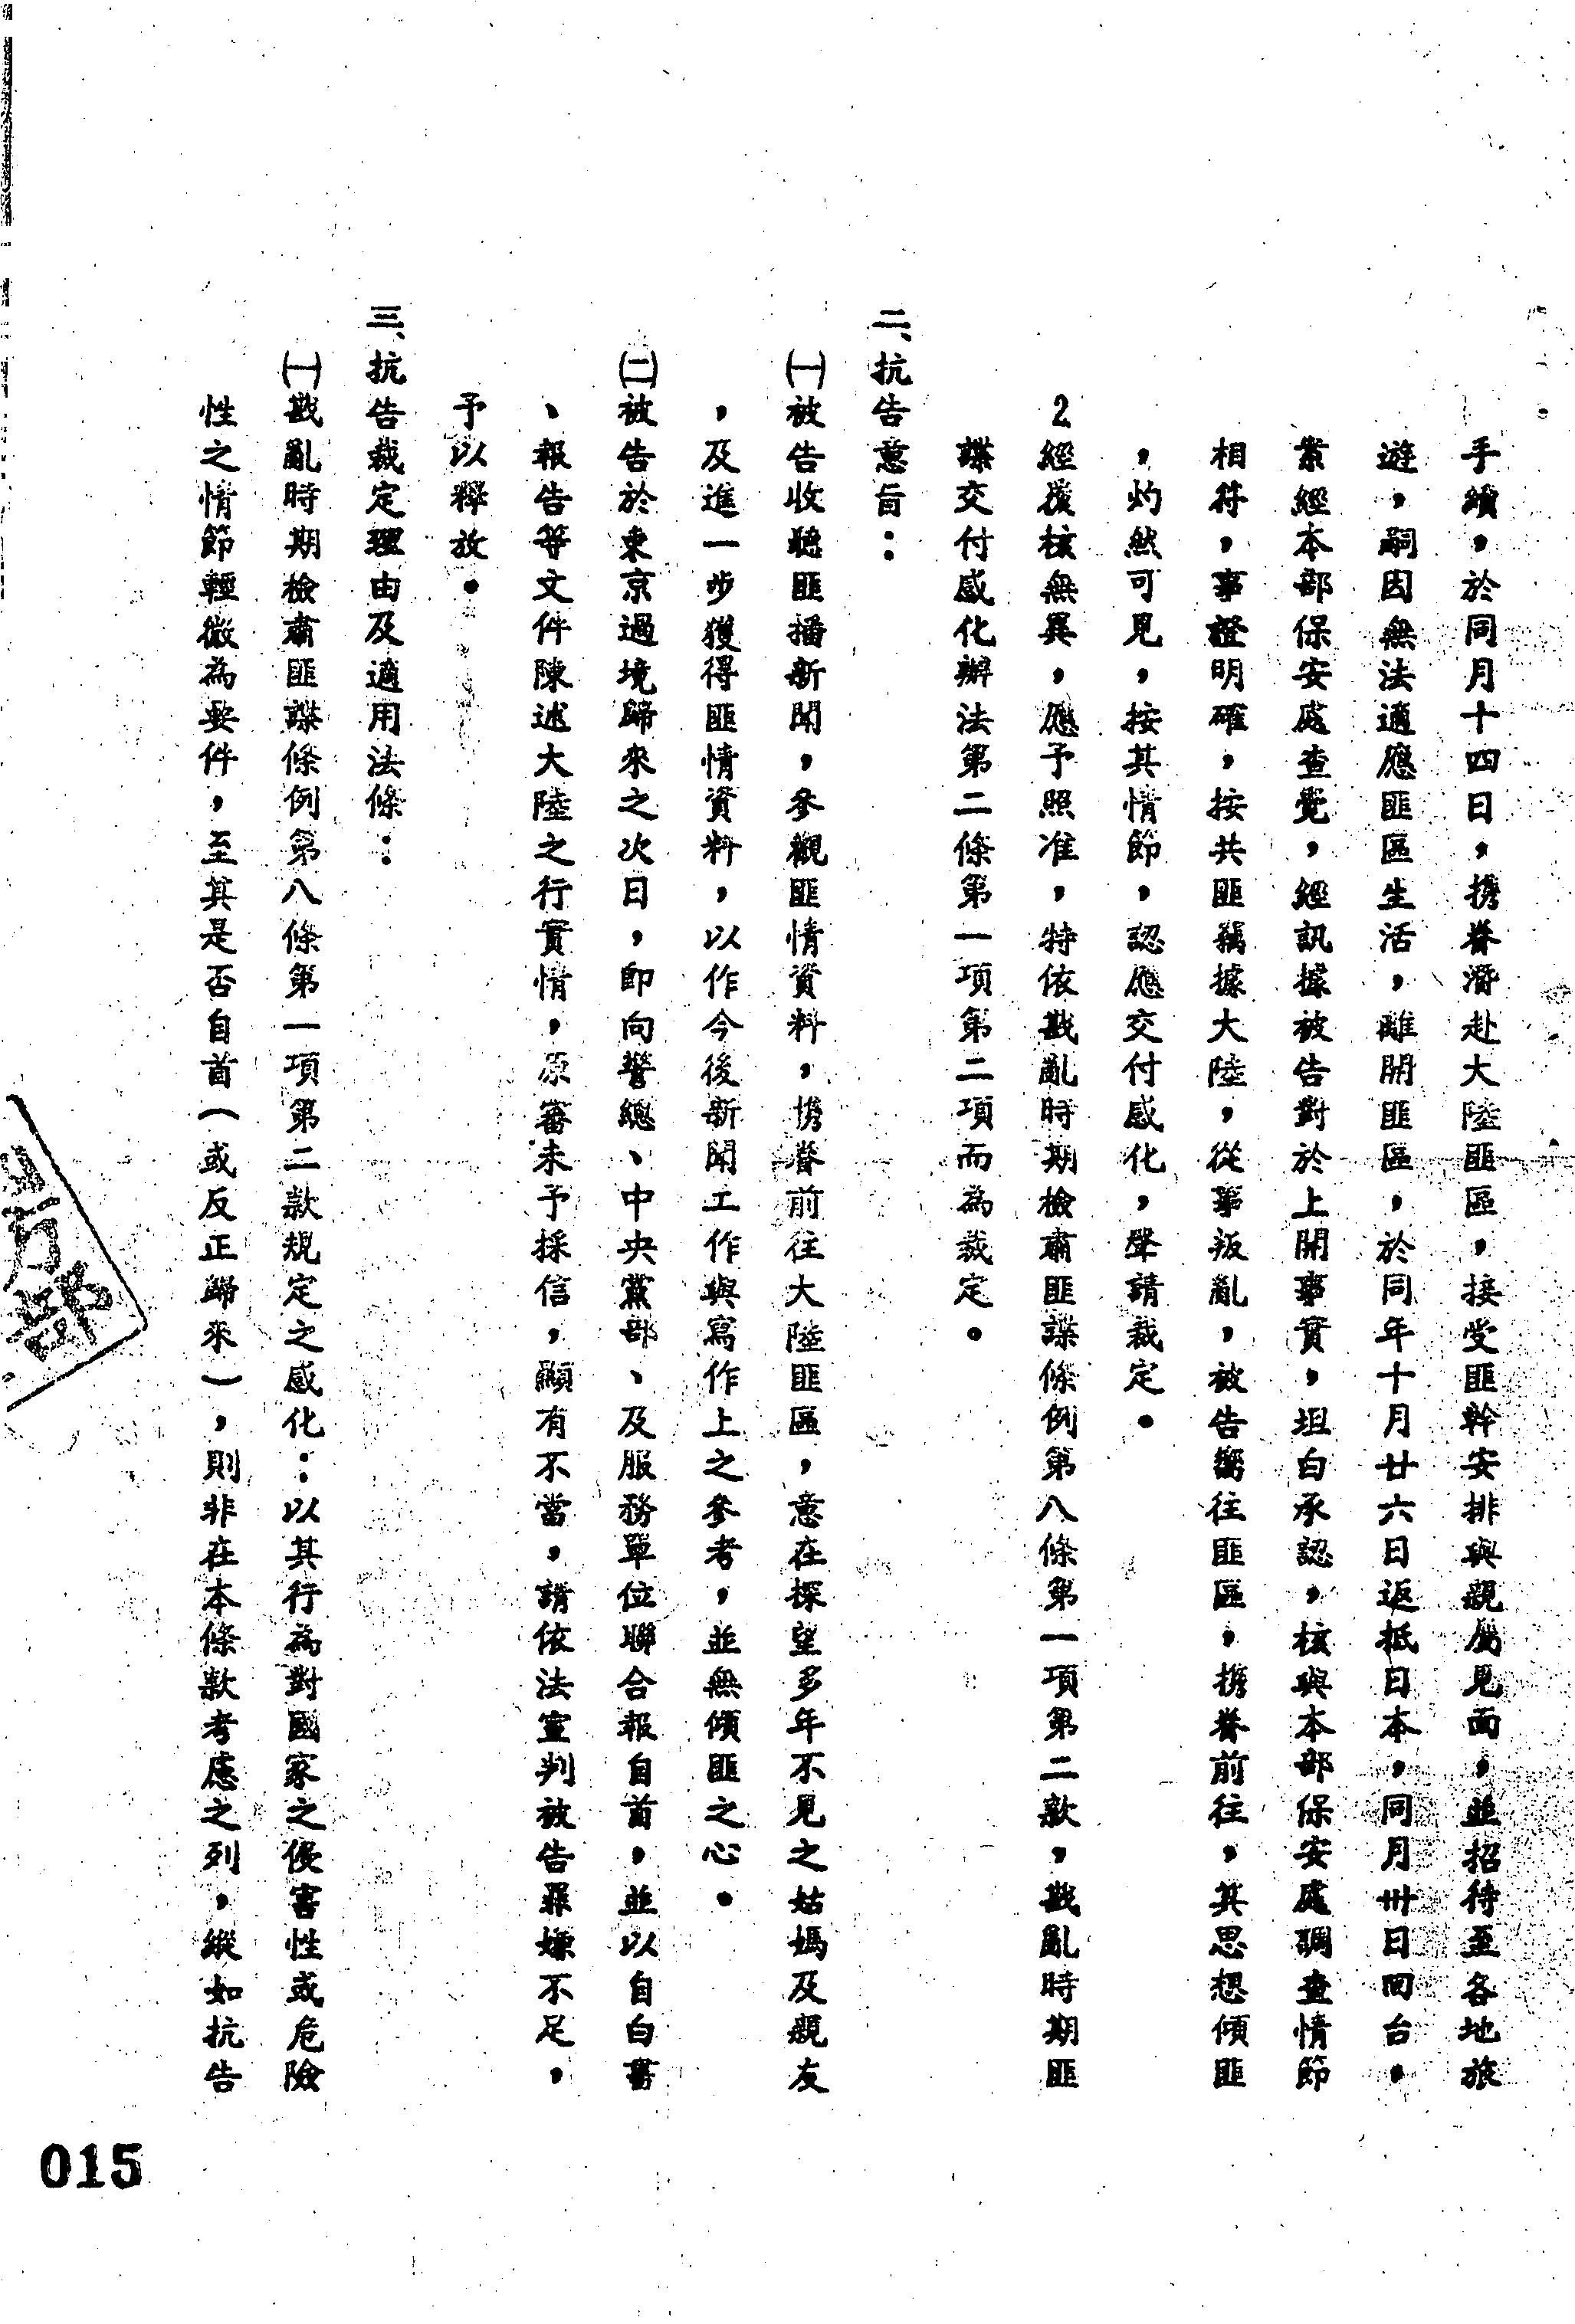 手續，於同月十四日，携眷潛赴大陸匪區，接受匪幹安排與親屬見面，並招待至各地旅
遊，嗣因無法適應匪區生活，離開匪區，於同年十月廿六日返抵日本，同月卅日回台，
案經本部保安處查覺，經訊據被告對於上開事實，坦白承認，核與本部保安處調查情節
相符，事證明確，按共匪竊據大陸，從事叛亂，被告嚮往匪區，携眷前往，其思想傾匪
，灼然可見，按其情節，認應交付感化，聲請裁定。
2經復核無異，應予照准，特依戡亂時期檢肅匪諜條例第八條第一項第二款，戡亂時期匪
諜交付感化辦法第二條第一項第二項而為裁定。
二、抗告意旨：
㈠被告收聽匪播新聞，參觀匪情資料，携眷前往大陸匪區，意在探望多年不見之姑媽及親友
，及進一步獲得匪情資料，以作今後新聞工作與寫作上之參考，並無傾匪之心。
㈡被告於東京過境歸來之次日，即向警總、中央黨部、及服務單位聯合報自首，並以自白書
、報告等文件陳述大陸之行實情，原審未予採信，顯有不當，請依法宣判被告罪嫌不足，
予以釋放。
三、抗告裁定理由及適用法條：
㈠戡亂時期檢肅匪諜條例第八條第一項第二款規定之感化：以其行為對國家之侵害性或危險
性之情節輕微為要件，至其是否自首（或反正歸來），則非在本條款考慮之列，縱如抗告
部
015